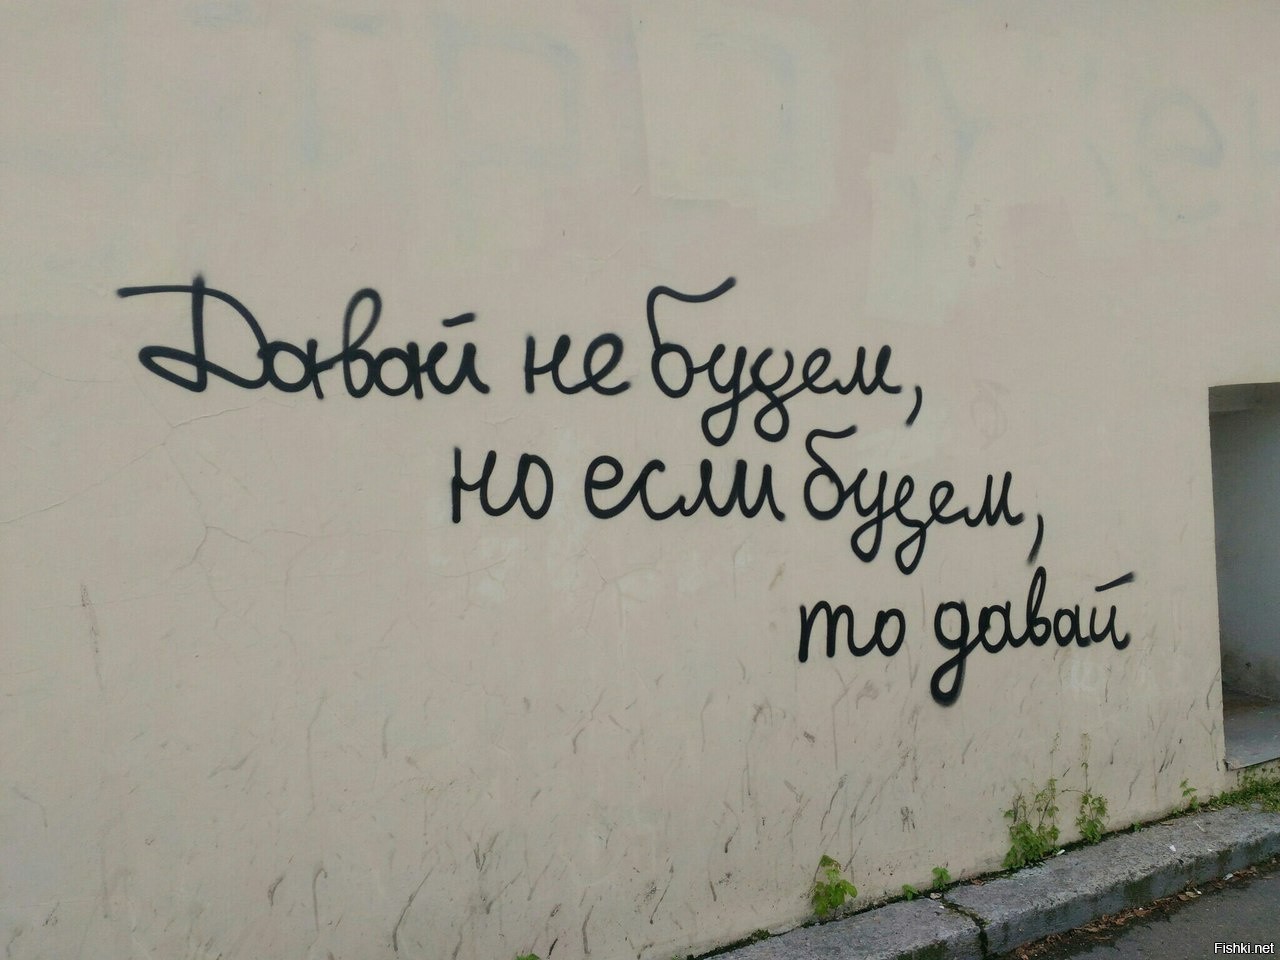 Давай не будем,
но если будем,
то давай
Fishki.net